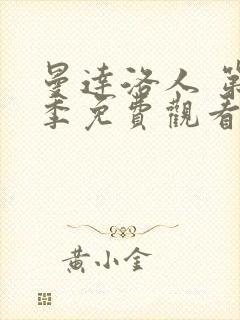 曼達洛人 第
季免費觀看
黃小金